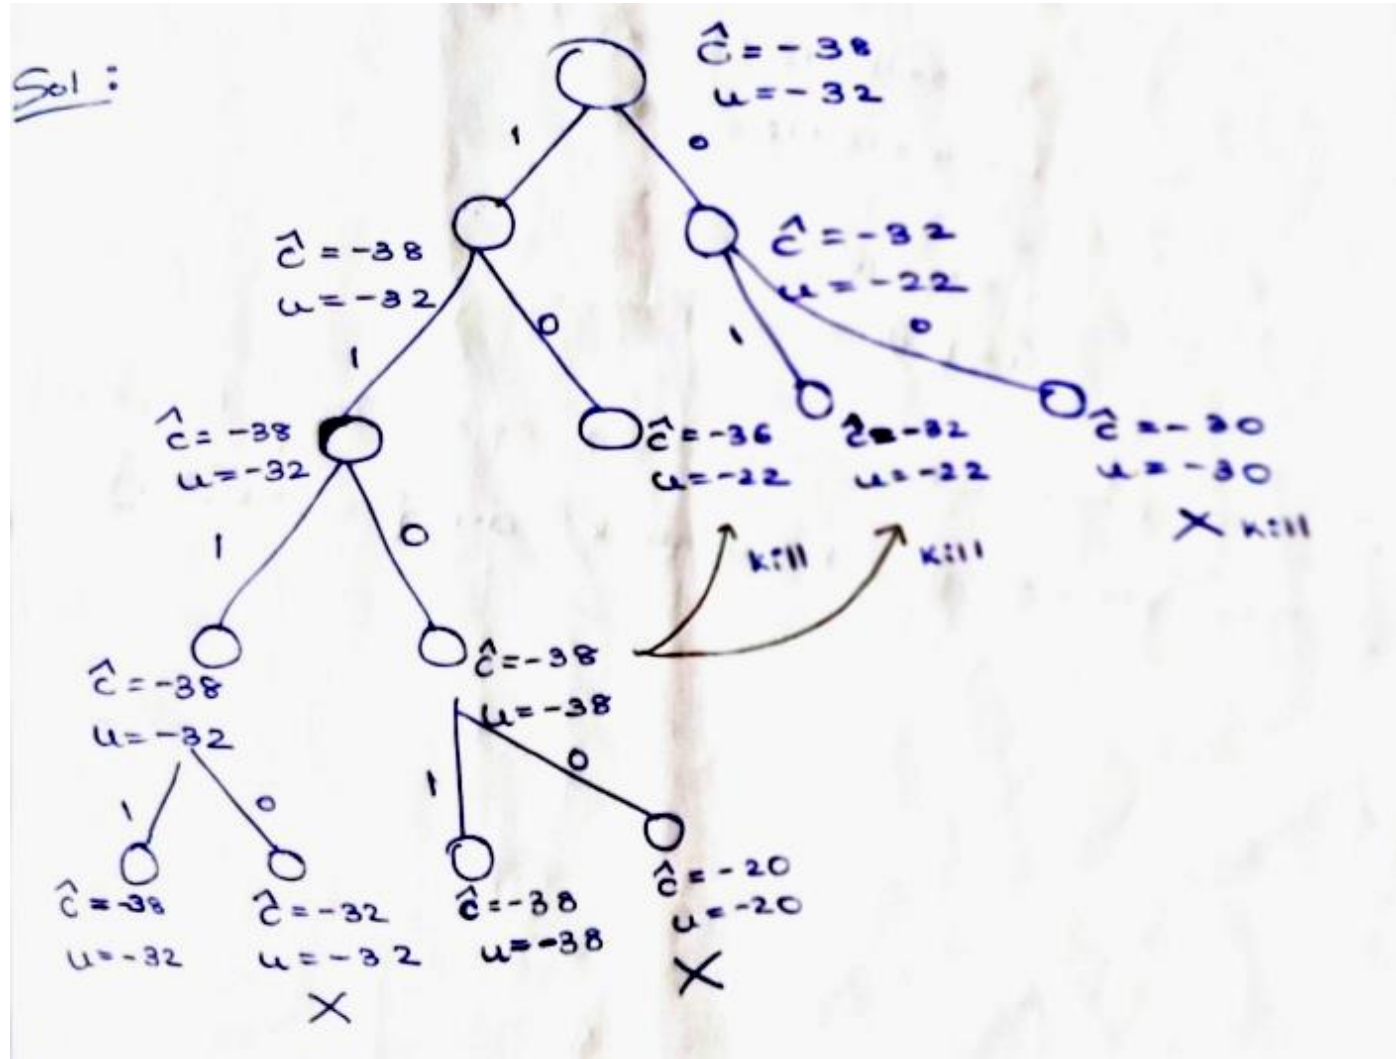 Sol :
ĉ = - 38
u = - 32
1
0
ĉ = -38
u = -32
ĉ = -32
u = -22
1
0
1
0
ĉ = -38
u = -32
ĉ = -36
u = -22
ĉ = -32
u = -22
ĉ = - 30
u = - 30
X kill
kill
kill
1
0
ĉ = -38
u = -32
ĉ = -38
u = -38
1
0
1
0
ĉ = -38
u = -32
ĉ = -32
u = -32
X
ĉ = -38
u = -38
ĉ = -20
u = -20
X